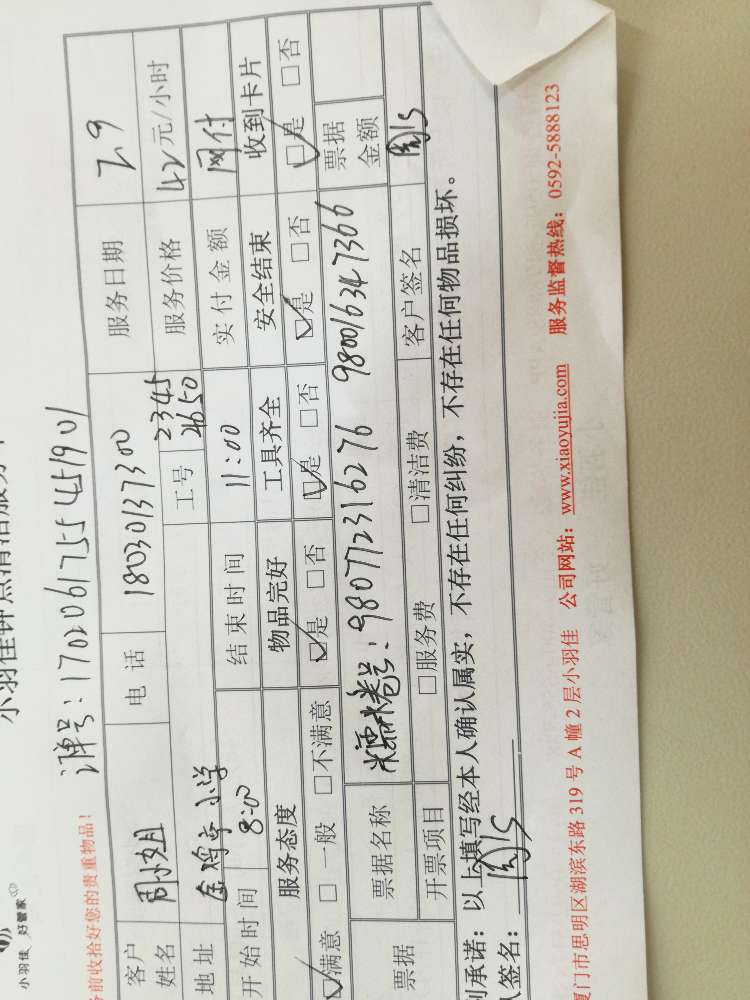 小羽佳 好管家
小羽佳钟点清洁服务
订单号：1702061755451901
务前收拾好您的贵重物品！
客户姓名 周小姐 电话 18030137300 服务日期 2.9
地址 金鸡亭小学 工号 2345 4650 服务价格 42元/小时
开始时间 8:00 结束时间 11:00 实付金额 网付
服务态度 物品完好 工具齐全 安全结束 收到卡片
☑满意 □一般 □不满意 ☑是 □否 ☑是 □否 ☑是 □否 ☑是 □否
票据 票据名称 糯米卷号：9807723162 76 980016347366 票据金额
开票项目 □服务费 □清洁费 客户签名
承诺：以上填写经本人确认属实，不存在任何纠纷，不存在任何物品损坏。
签名：
厦门市思明区湖滨东路 319 号 A 幢 2 层小羽佳 公司网站：www.xiaoyujia.com 服务监督热线：0592-5888123